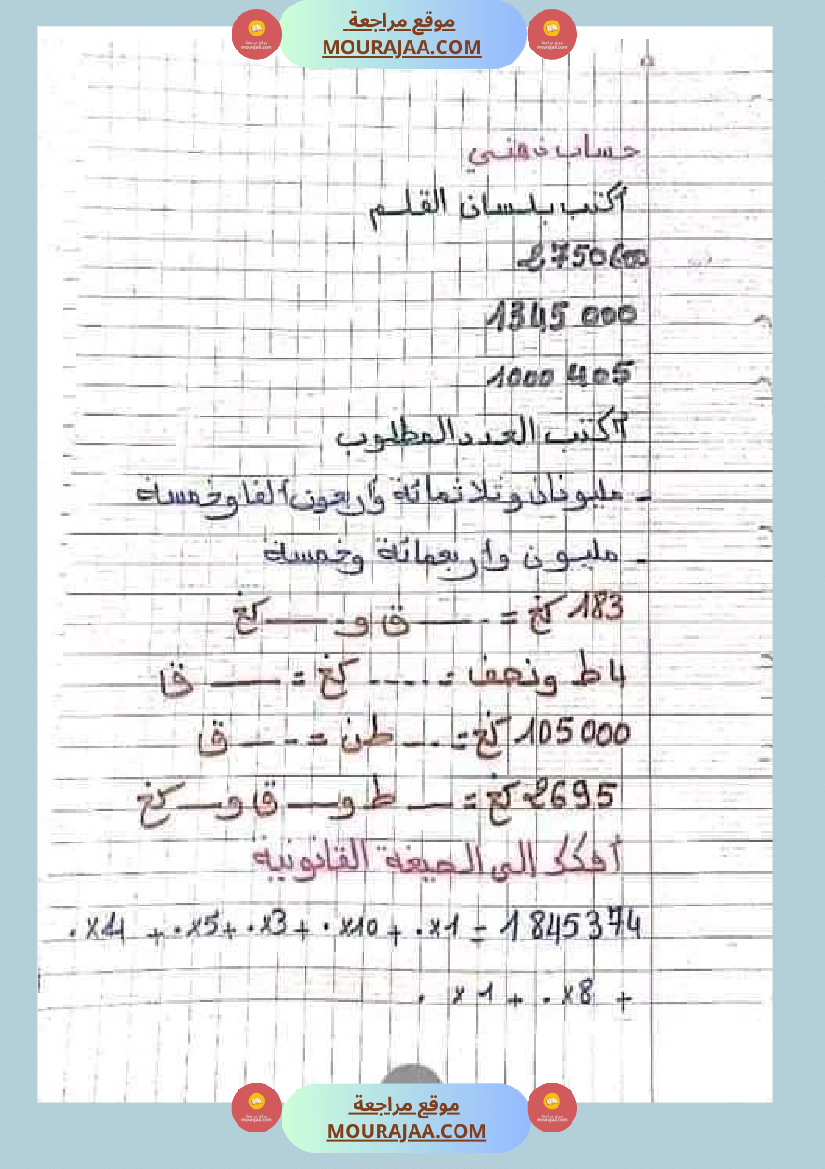 موقع مراجعة
MOURAJAA.COM
حساب ذهني
اكتب بلسان القلم
2750600
1345 000
1000 405
اكتب العدد المطلوب
- مليونان وثلاثمائة وأربعون ألفا وخمسة
- مليون واربعمائة وخمسة
183 كغ = ـــــ ق و ـــــ كغ
4 ط ونصف = .... كغ = ـــــ ق
105 000 كغ = ... طن = ... ق
2695 كغ = ـــ ط و ـــ ق و ـــ كغ
أفكك إلى الصيغة القانونية
1 845 374 = 1x. + 10x. + 3x. + 5x. + 4x.
+ 8x. + 1x .
موقع مراجعة
MOURAJAA.COM